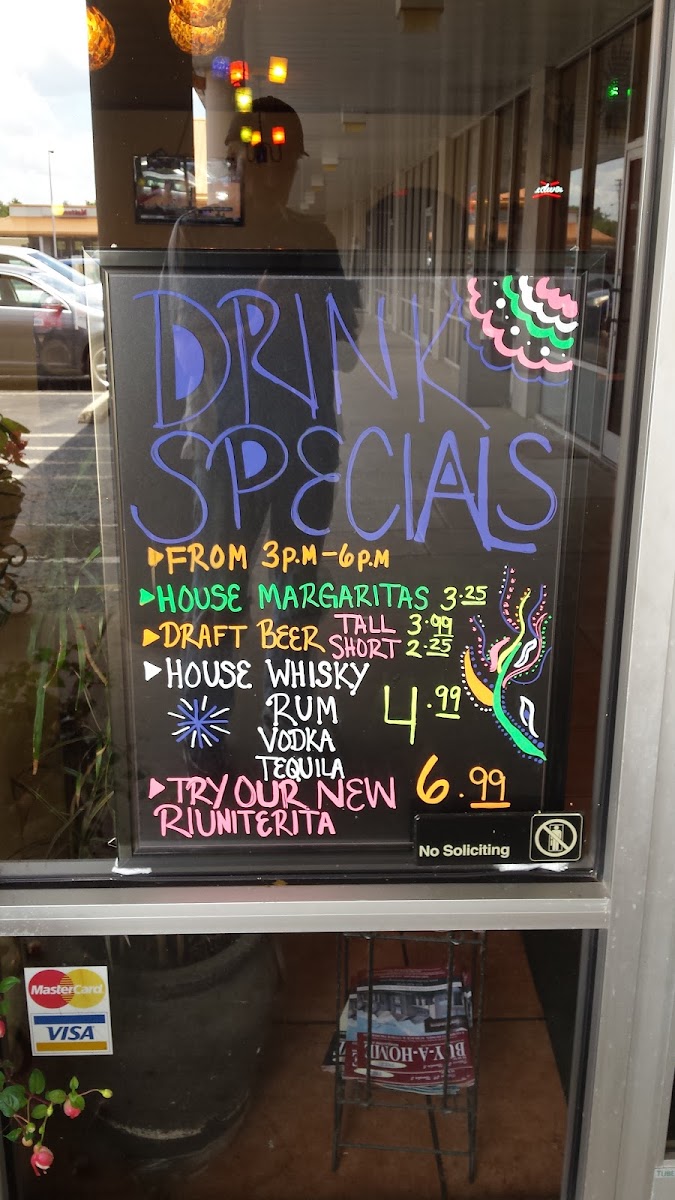 DRINK
SPECIALS
▸FROM 3P.M-6P.M
▸HOUSE MARGARITAS 3.25
▸DRAFT BEER TALL 3.99
SHORT 2.25
▸HOUSE WHISKY
RUM 4.99
VODKA
TEQUILA
▸TRY OUR NEW 6.99
RIUNITERITA
No Soliciting
MasterCard
VISA
BUY-A-HOME